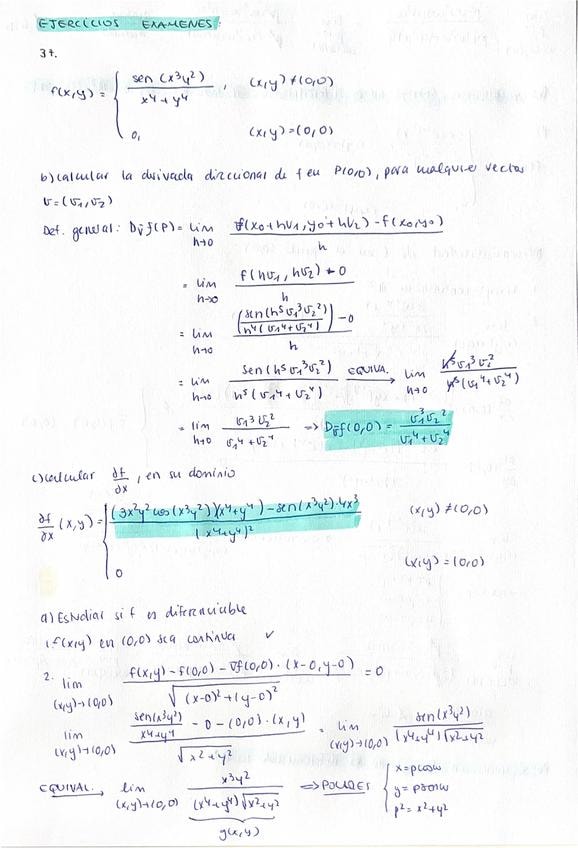 EJERCICIOS EXAMENES.
37.
f(x,y) = { sen(x³y²) / (x⁴+y⁴), (x,y)≠(0,0)
0, (x,y)=(0,0)
b) calcular la derivada direccional de f en P(0,0), para cualquier vector
v=(v₁,v₂)
Def. general: D_v̄ f(P) = lim h→0 (f(x₀+hv₁, y₀+hv₂) - f(x₀,y₀)) / h
= lim h→0 (f(hv₁, hv₂) - 0) / h
= lim h→0 ((sen(h⁵v₁³v₂²) / h⁴(v₁⁴+v₂⁴)) - 0) / h
= lim h→0 sen(h⁵v₁³v₂²) / h⁵(v₁⁴+v₂⁴) EQUIVA. → lim h→0 h⁵v₁³v₂² / h⁵(v₁⁴+v₂⁴)
= lim h→0 v₁³v₂² / (v₁⁴+v₂⁴) ⇒ D_v̄ f(0,0) = v₁³v₂² / (v₁⁴+v₂⁴)
c) calcular ∂f/∂x, en su dominio
∂f/∂x (x,y) = { ((3x²y² cos(x³y²))(x⁴+y⁴) - sen(x³y²)·4x³) / (x⁴+y⁴)² (x,y)≠(0,0)
0 (x,y)=(0,0)
a) Estudiar si f es diferenciable
1. f(x,y) en (0,0) sea continua ✓
2. lim (x,y)→(0,0) (f(x,y) - f(0,0) - ∇f(0,0)·(x-0,y-0)) / √((x-0)²+(y-0)²) = 0
lim (x,y)→(0,0) (sen(x³y²)/(x⁴+y⁴) - 0 - (0,0)·(x,y)) / √(x²+y²) = lim (x,y)→(0,0) sen(x³y²) / (x⁴+y⁴)√(x²+y²)
EQUIVAL. → lim (x,y)→(0,0) x³y² / (x⁴+y⁴)√(x²+y²) ⇒ POLARES { x=ρcosω
y=ρsenω
ρ²=x²+y²
g(x,y)